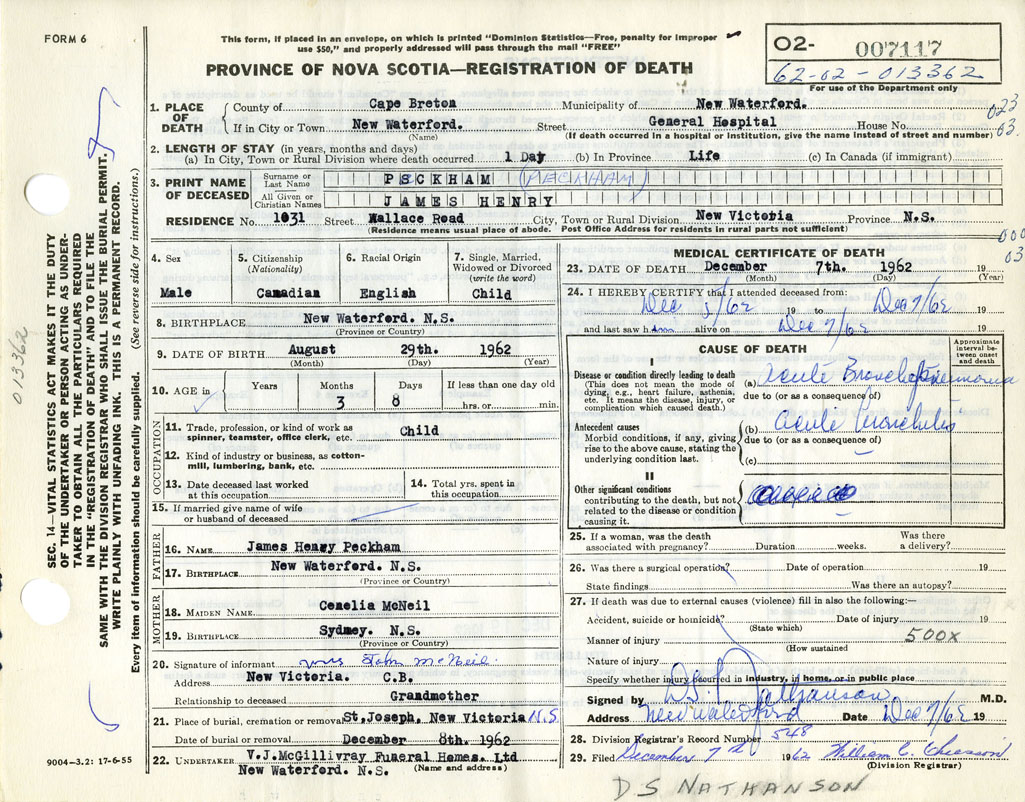 FORM 6
This form, if placed in an envelope, on which is printed "Dominion Statistics—Free, penalty for improper
use $50," and properly addressed will pass through the mail "FREE"
PROVINCE OF NOVA SCOTIA—REGISTRATION OF DEATH
02- 007117
62-02-013362
For use of the Department only
1. PLACE OF DEATH County of Cape Breton Municipality of New Waterford.
If in City or Town New Waterford. Street General Hospital House No.
(Name) (If death occurred in a hospital or institution, give the name instead of street and number)
023
03.
2. LENGTH OF STAY (in years, months and days)
(a) In City, Town or Rural Division where death occurred 1 Day (b) In Province Life (c) In Canada (if immigrant)
3. PRINT NAME OF DECEASED
Surname or Last Name PECKHAM (PECKHAM)
All Given or Christian Names JAMES HENRY
RESIDENCE No. 1031 Street Wallace Road City, Town or Rural Division New Victoria Province N.S.
(Residence means usual place of abode. Post Office Address for residents in rural parts not sufficient)
000
03
4. Sex Male
5. Citizenship (Nationality) Canadian
6. Racial Origin English
7. Single, Married, Widowed or Divorced (write the word) Child
8. BIRTHPLACE New Waterford. N.S.
(Province or Country)
9. DATE OF BIRTH August 29th. 1962
(Month) (Day) (Year)
10. AGE in Years Months 3 Days 8 If less than one day old hrs. or min.
OCCUPATION
11. Trade, profession or kind of work as spinner, teamster, office clerk, etc. Child
12. Kind of industry or business, as cotton-mill, lumbering, bank, etc.
13. Date deceased last worked at this occupation
14. Total yrs. spent in this occupation
15. If married give name of wife or husband of deceased
FATHER
16. NAME James Henry Peckham
17. BIRTHPLACE New Waterford. N.S.
(Province or Country)
MOTHER
18. MAIDEN NAME Cemelia McNeil
19. BIRTHPLACE Sydney. N.S.
(Province or Country)
20. Signature of informant Mrs John McNeil.
Address New Victoria. C.B.
Relationship to deceased Grandmother
21. Place of burial, cremation or removal St.Joseph. New Victoria N.S.
Date of burial or removal December 8th. 1962
22. UNDERTAKER V.J.McGillivray Funeral Homes. Ltd
New Waterford. N.S. (Name and address)
9004—3.2: 17-6-55
MEDICAL CERTIFICATE OF DEATH
23. DATE OF DEATH December 7th. 1962 19
(Month) (Day) (Year)
24. I HEREBY CERTIFY that I attended deceased from:
Dec 5/62 19 to Dec 7/62 19
and last saw him alive on Dec 7/62 19
CAUSE OF DEATH
Approximate interval between onset and death
I
Disease or condition directly leading to death
(This does not mean the mode of dying, e.g., heart failure, asthenia, etc. It means the disease, injury, or complication which caused death.)
(a) Acute Broncho Pneumonia
due to (or as a consequence of)
Antecedent causes
Morbid conditions, if any, giving rise to the above cause, stating the underlying condition last.
(b) Acute Bronchitis
due to (or as a consequence of)
(c)
II
Other significant conditions
contributing to the death, but not related to the disease or condition causing it.
25. If a woman, was the death associated with pregnancy? Duration weeks. Was there a delivery?
26. Was there a surgical operation? Date of operation 19
State findings Was there an autopsy?
27. If death was due to external causes (violence) fill in also the following:—
Accident, suicide or homicide? Date of injury 19
(State which)
Manner of injury 500X
(How sustained
Nature of injury
Specify whether injury occurred in industry, in home, or in public place
Signed by D.S. Nathanson M.D.
Address New Waterford Date Dec 7/62 19
28. Division Registrar's Record Number 548
29. Filed December 7th 1962
(Division Registrar)
DS NATHANSON
SEC. 14—VITAL STATISTICS ACT MAKES IT THE DUTY
OF THE UNDERTAKER OR PERSON ACTING AS UNDER-
TAKER TO OBTAIN ALL THE PARTICULARS REQUIRED
IN THE "REGISTRATION OF DEATH" AND TO FILE THE
SAME WITH THE DIVISION REGISTRAR WHO SHALL ISSUE THE BURIAL PERMIT.
WRITE PLAINLY WITH UNFADING INK. THIS IS A PERMANENT RECORD.
Every item of information should be carefully supplied. (See reverse side for instructions.)
013362